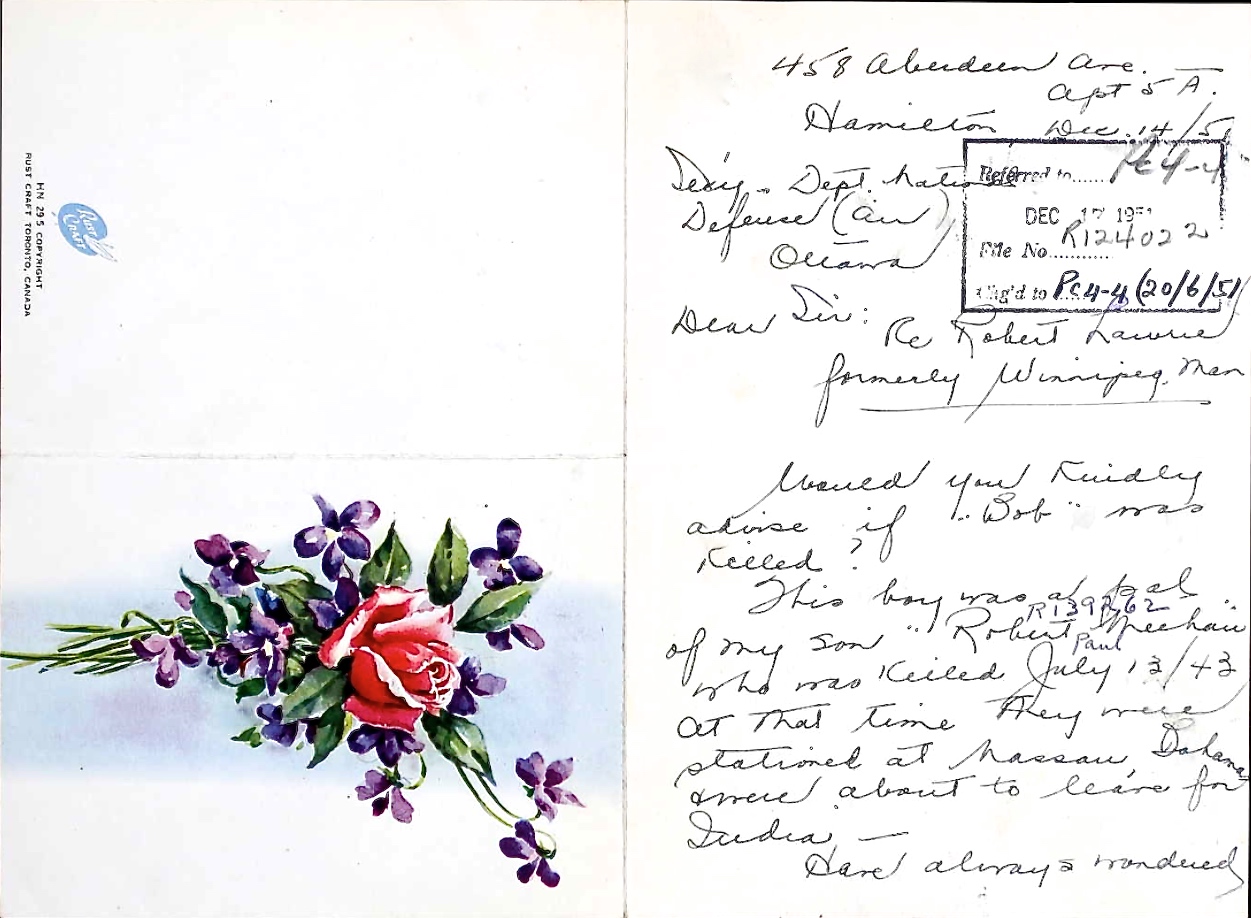 RUST CRAFT
HN 295 COPYRIGHT
RUST CRAFT TORONTO, CANADA
458 Aberdeen Ave.
Apt 5 A.
Hamilton Dec. 14/51
Sec'y - Dept. National
Defense (Air)
Ottawa
Referred to...... PC4-4
DEC 17 1951
File No. R124022
Chg'd to PC4-4 (20/6/51)
Dear Sir:
Re Robert Lawrie
formerly Winnipeg, Man
Would you kindly
advise if "Bob" was
killed?
This boy was a pal
R139262
of my son "Robert Meehan
Paul
who was killed July 13/43
At that time they were
stationed at Nassau, Bahamas
& were about to leave for
India —
Have always wondered